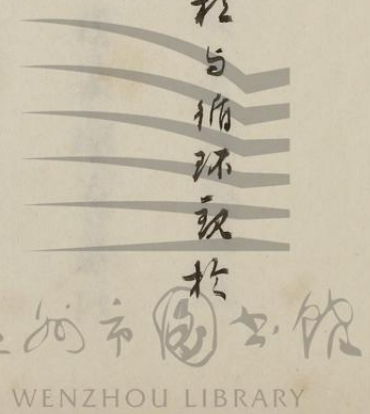 与循环观扵
州市图书馆
WENZHOU LIBRARY